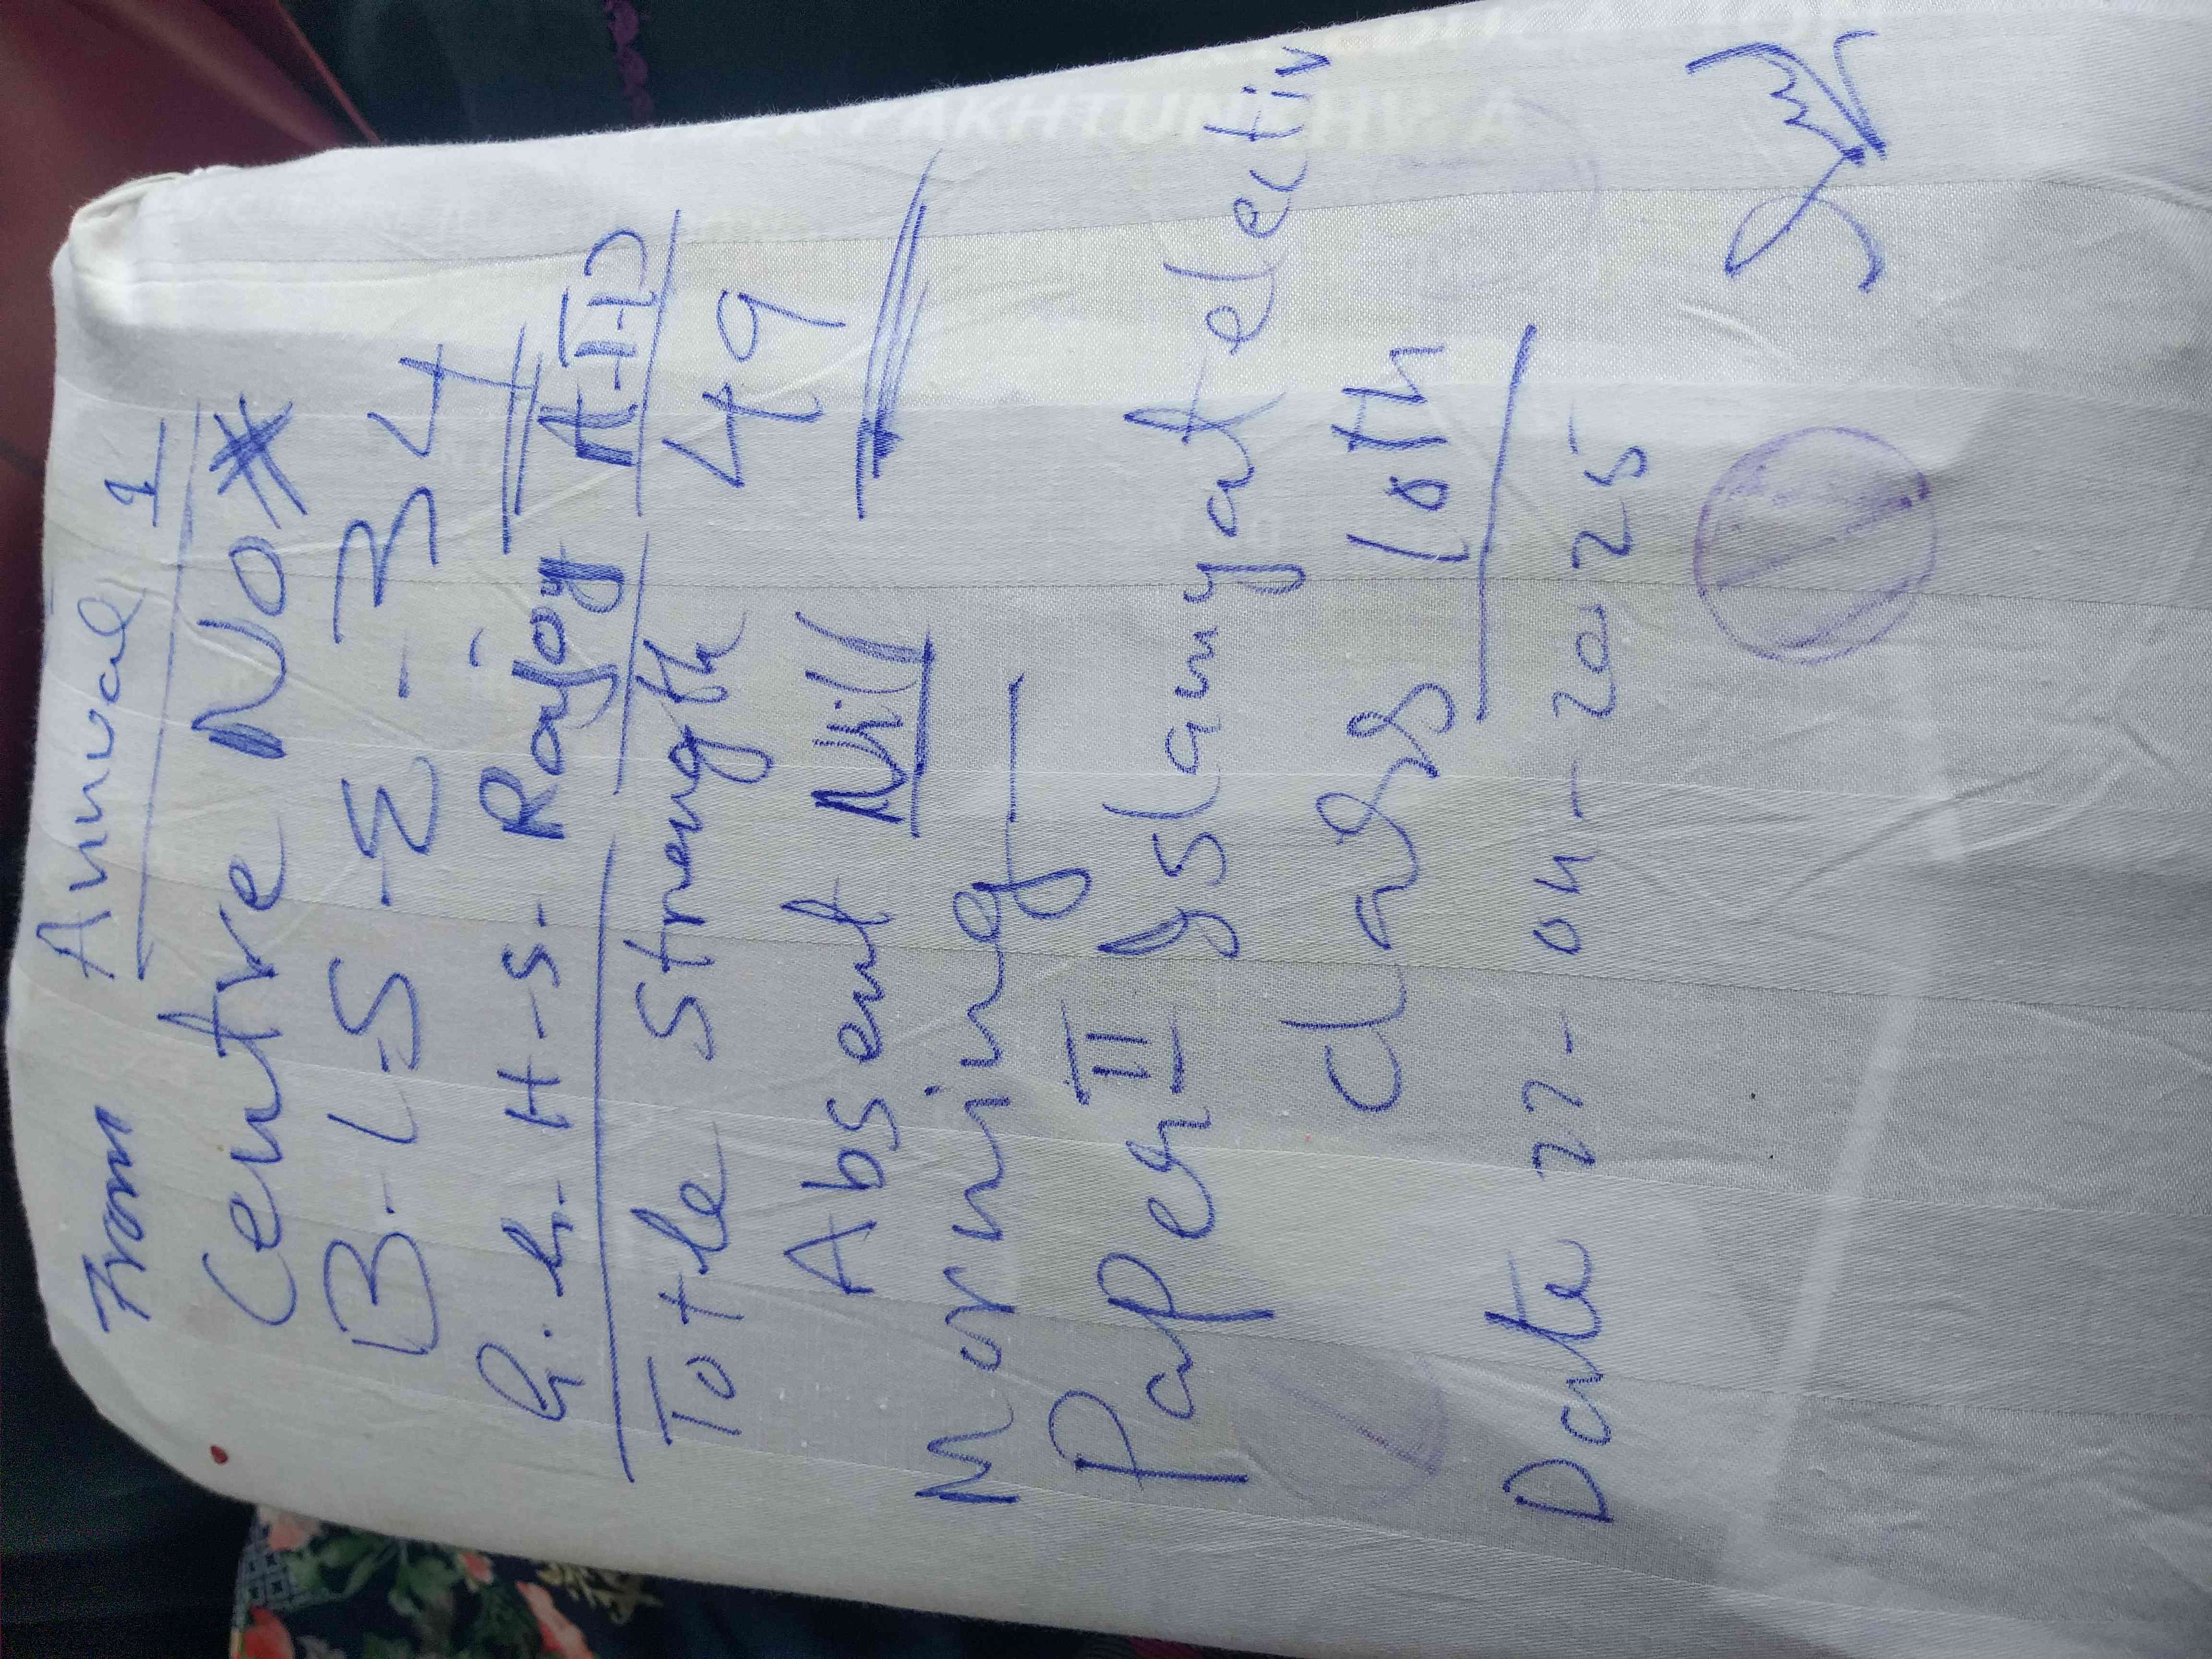 From Annual 1
Centre No #
B-I-S-E-34
G.G.H-S- Rajoy A-T-D
Totle Strength 49
Absent Nill
Morning
PaPer II yslamyat elective
class 10th
Date 22-04-2025
PAKHTUNKHWA